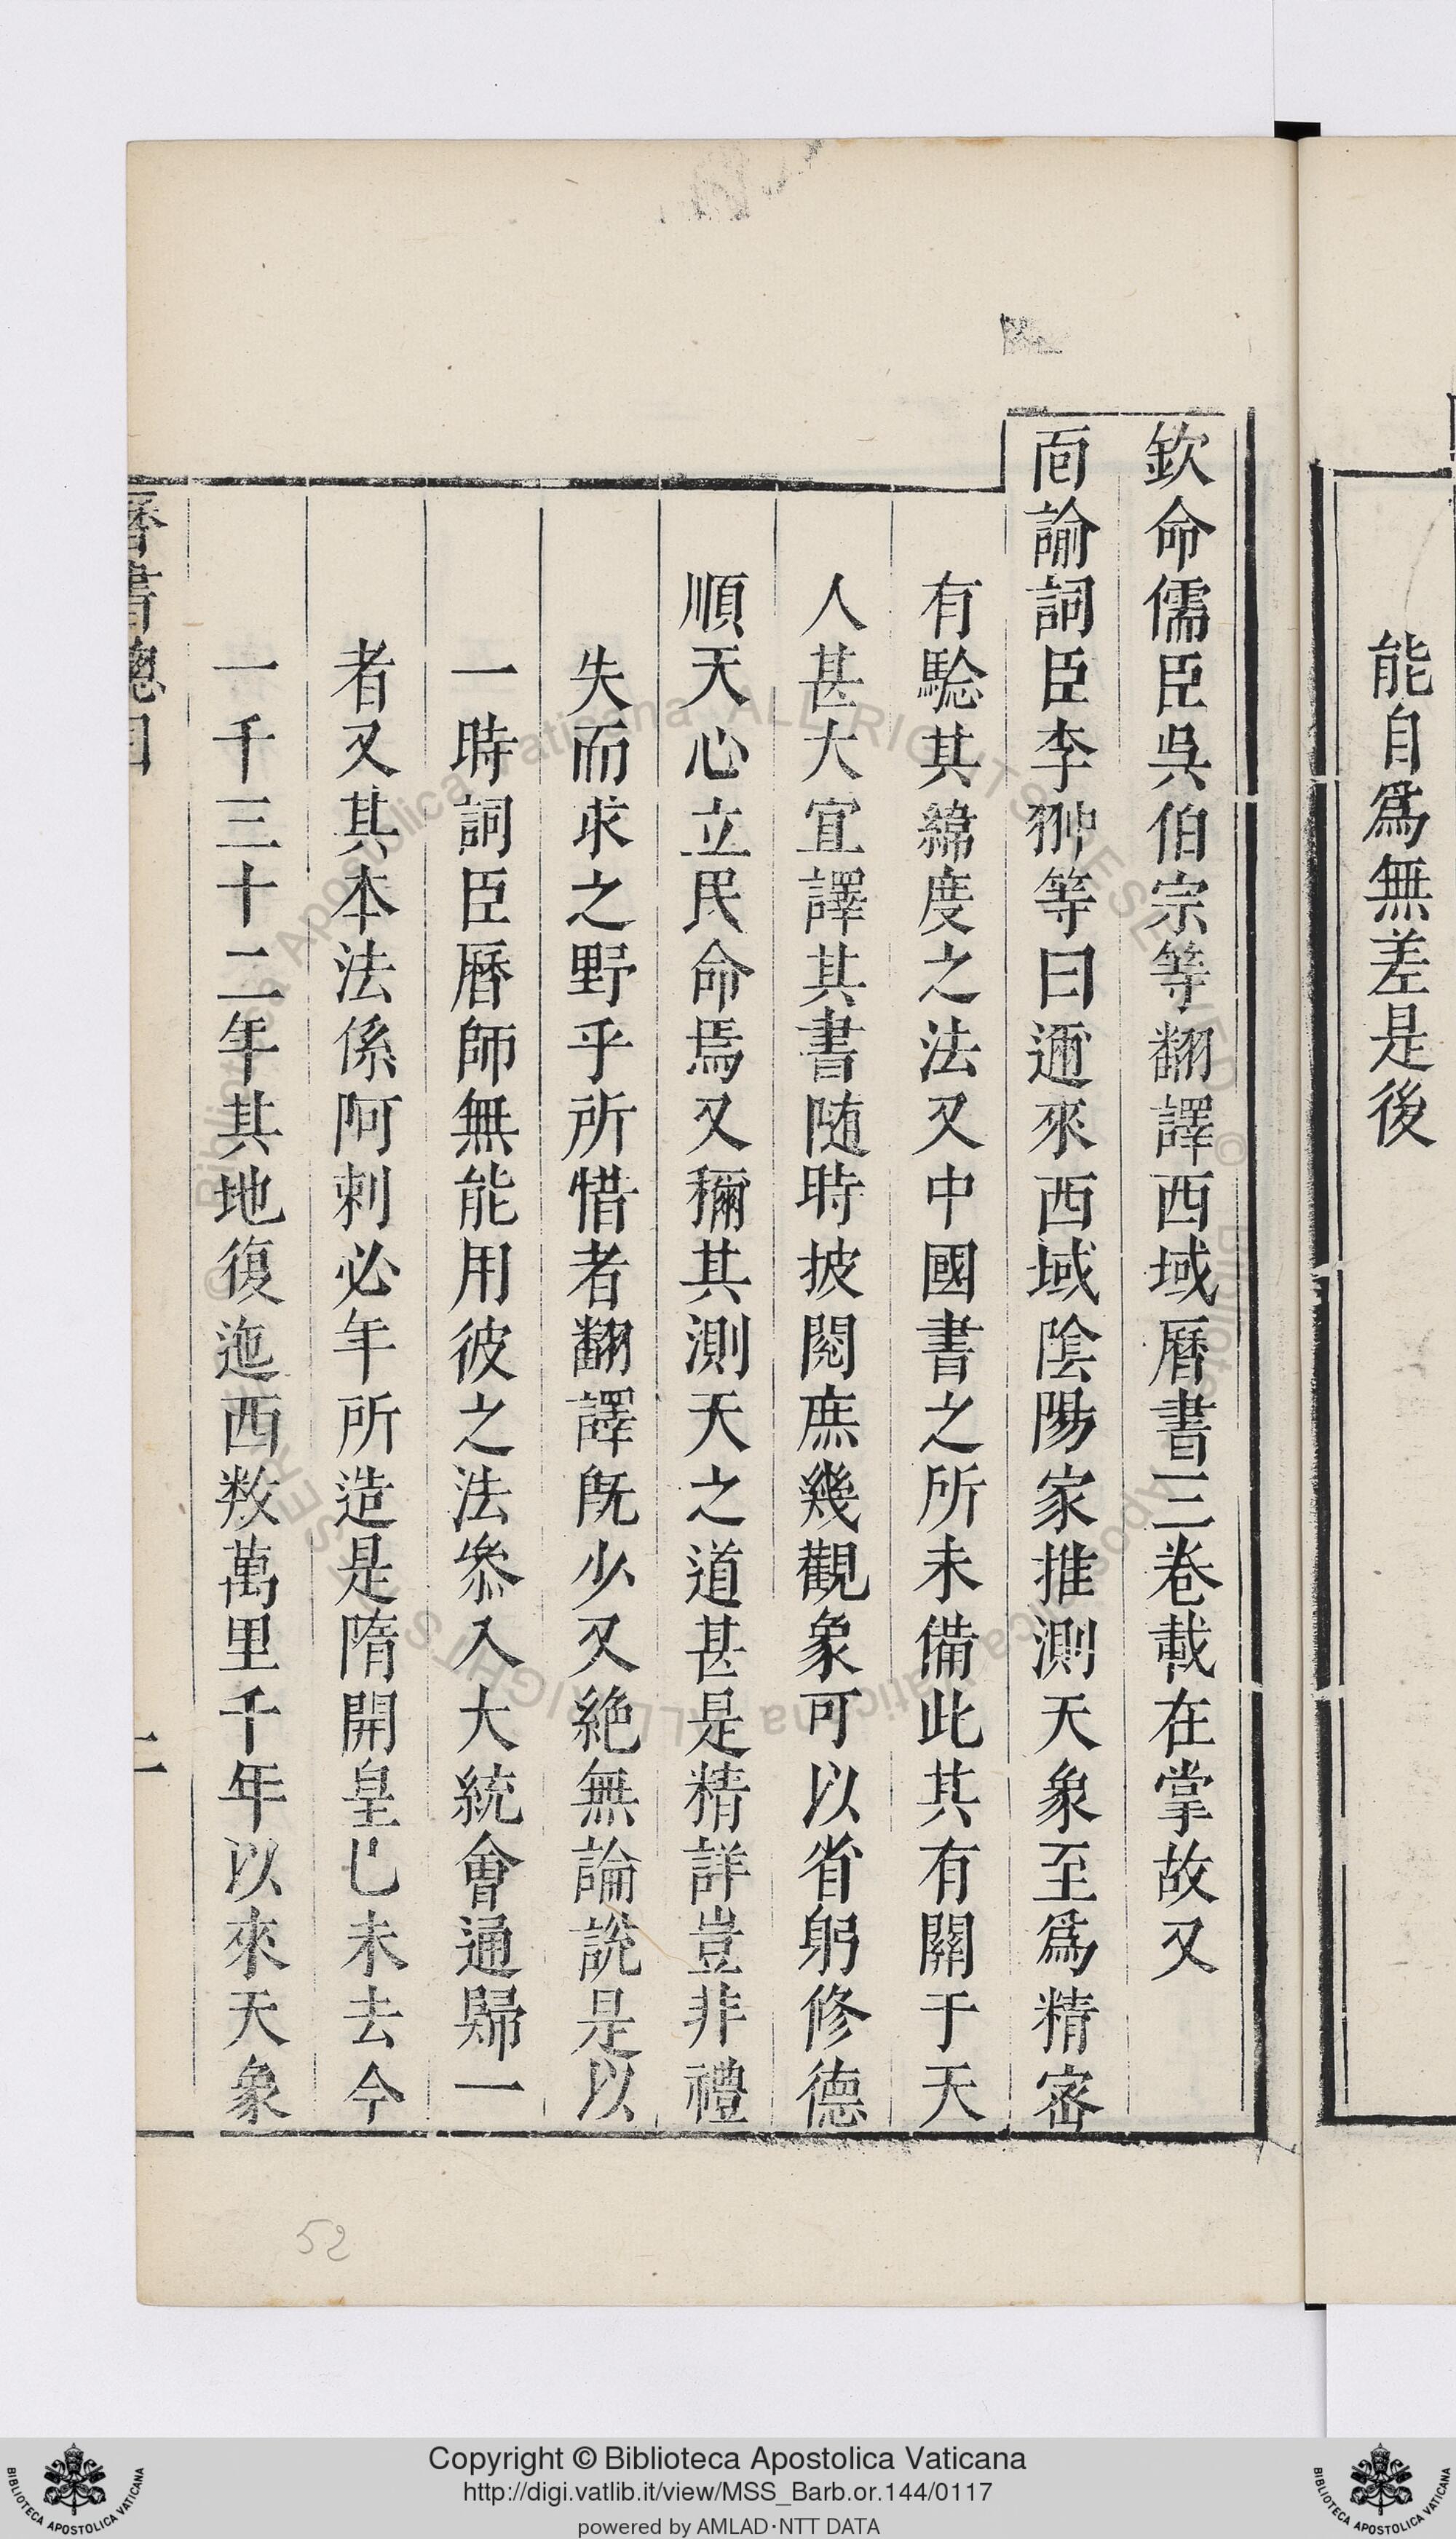 能自爲無差是後
欽命儒臣吳伯宗等翻譯西域曆書三卷載在掌故又
面諭詞臣李翀等曰邇來西域陰陽家推測天象至爲精宻
有驗其緯度之法又中國書之所未備此其有關于天
人甚大宜譯其書随時披閱庶幾觀象可以省躬修德
順天心立民命焉又稱其測天之道甚是精詳豈非禮
失而求之野乎所惜者翻譯旣少又絶無論說是以
一時詞臣曆師無能用彼之法叅入大統會通歸一
者又其本法係阿剌必年所造是隋開皇己未去今
一千三十二年其地復迤西数萬里千年以來天象
曆書總目
二
52
Copyright © Biblioteca Apostolica Vaticana
http://digi.vatlib.it/view/MSS_Barb.or.144/0117
powered by AMLAD·NTT DATA
BIBLIOTECA APOSTOLICA VATICANA
BIBLIOTECA APOSTOLICA VATICANA